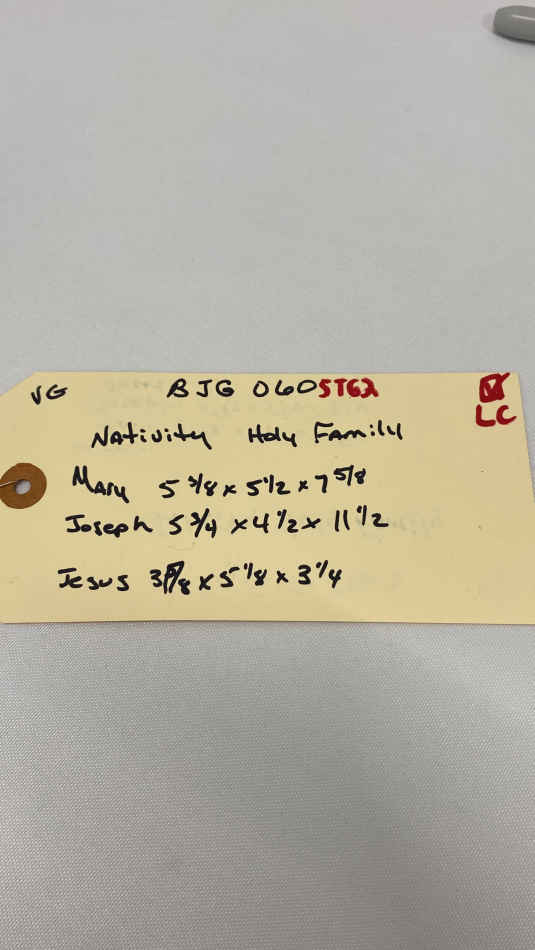 VG BJG 0605TG2
LC
Nativity Holy Family
Mary 5 3/8 x 5 1/2 x 7 5/8
Joseph 5 3/4 x 4 1/2 x 11 1/2
Jesus x 5 1/8 x 3 1/4